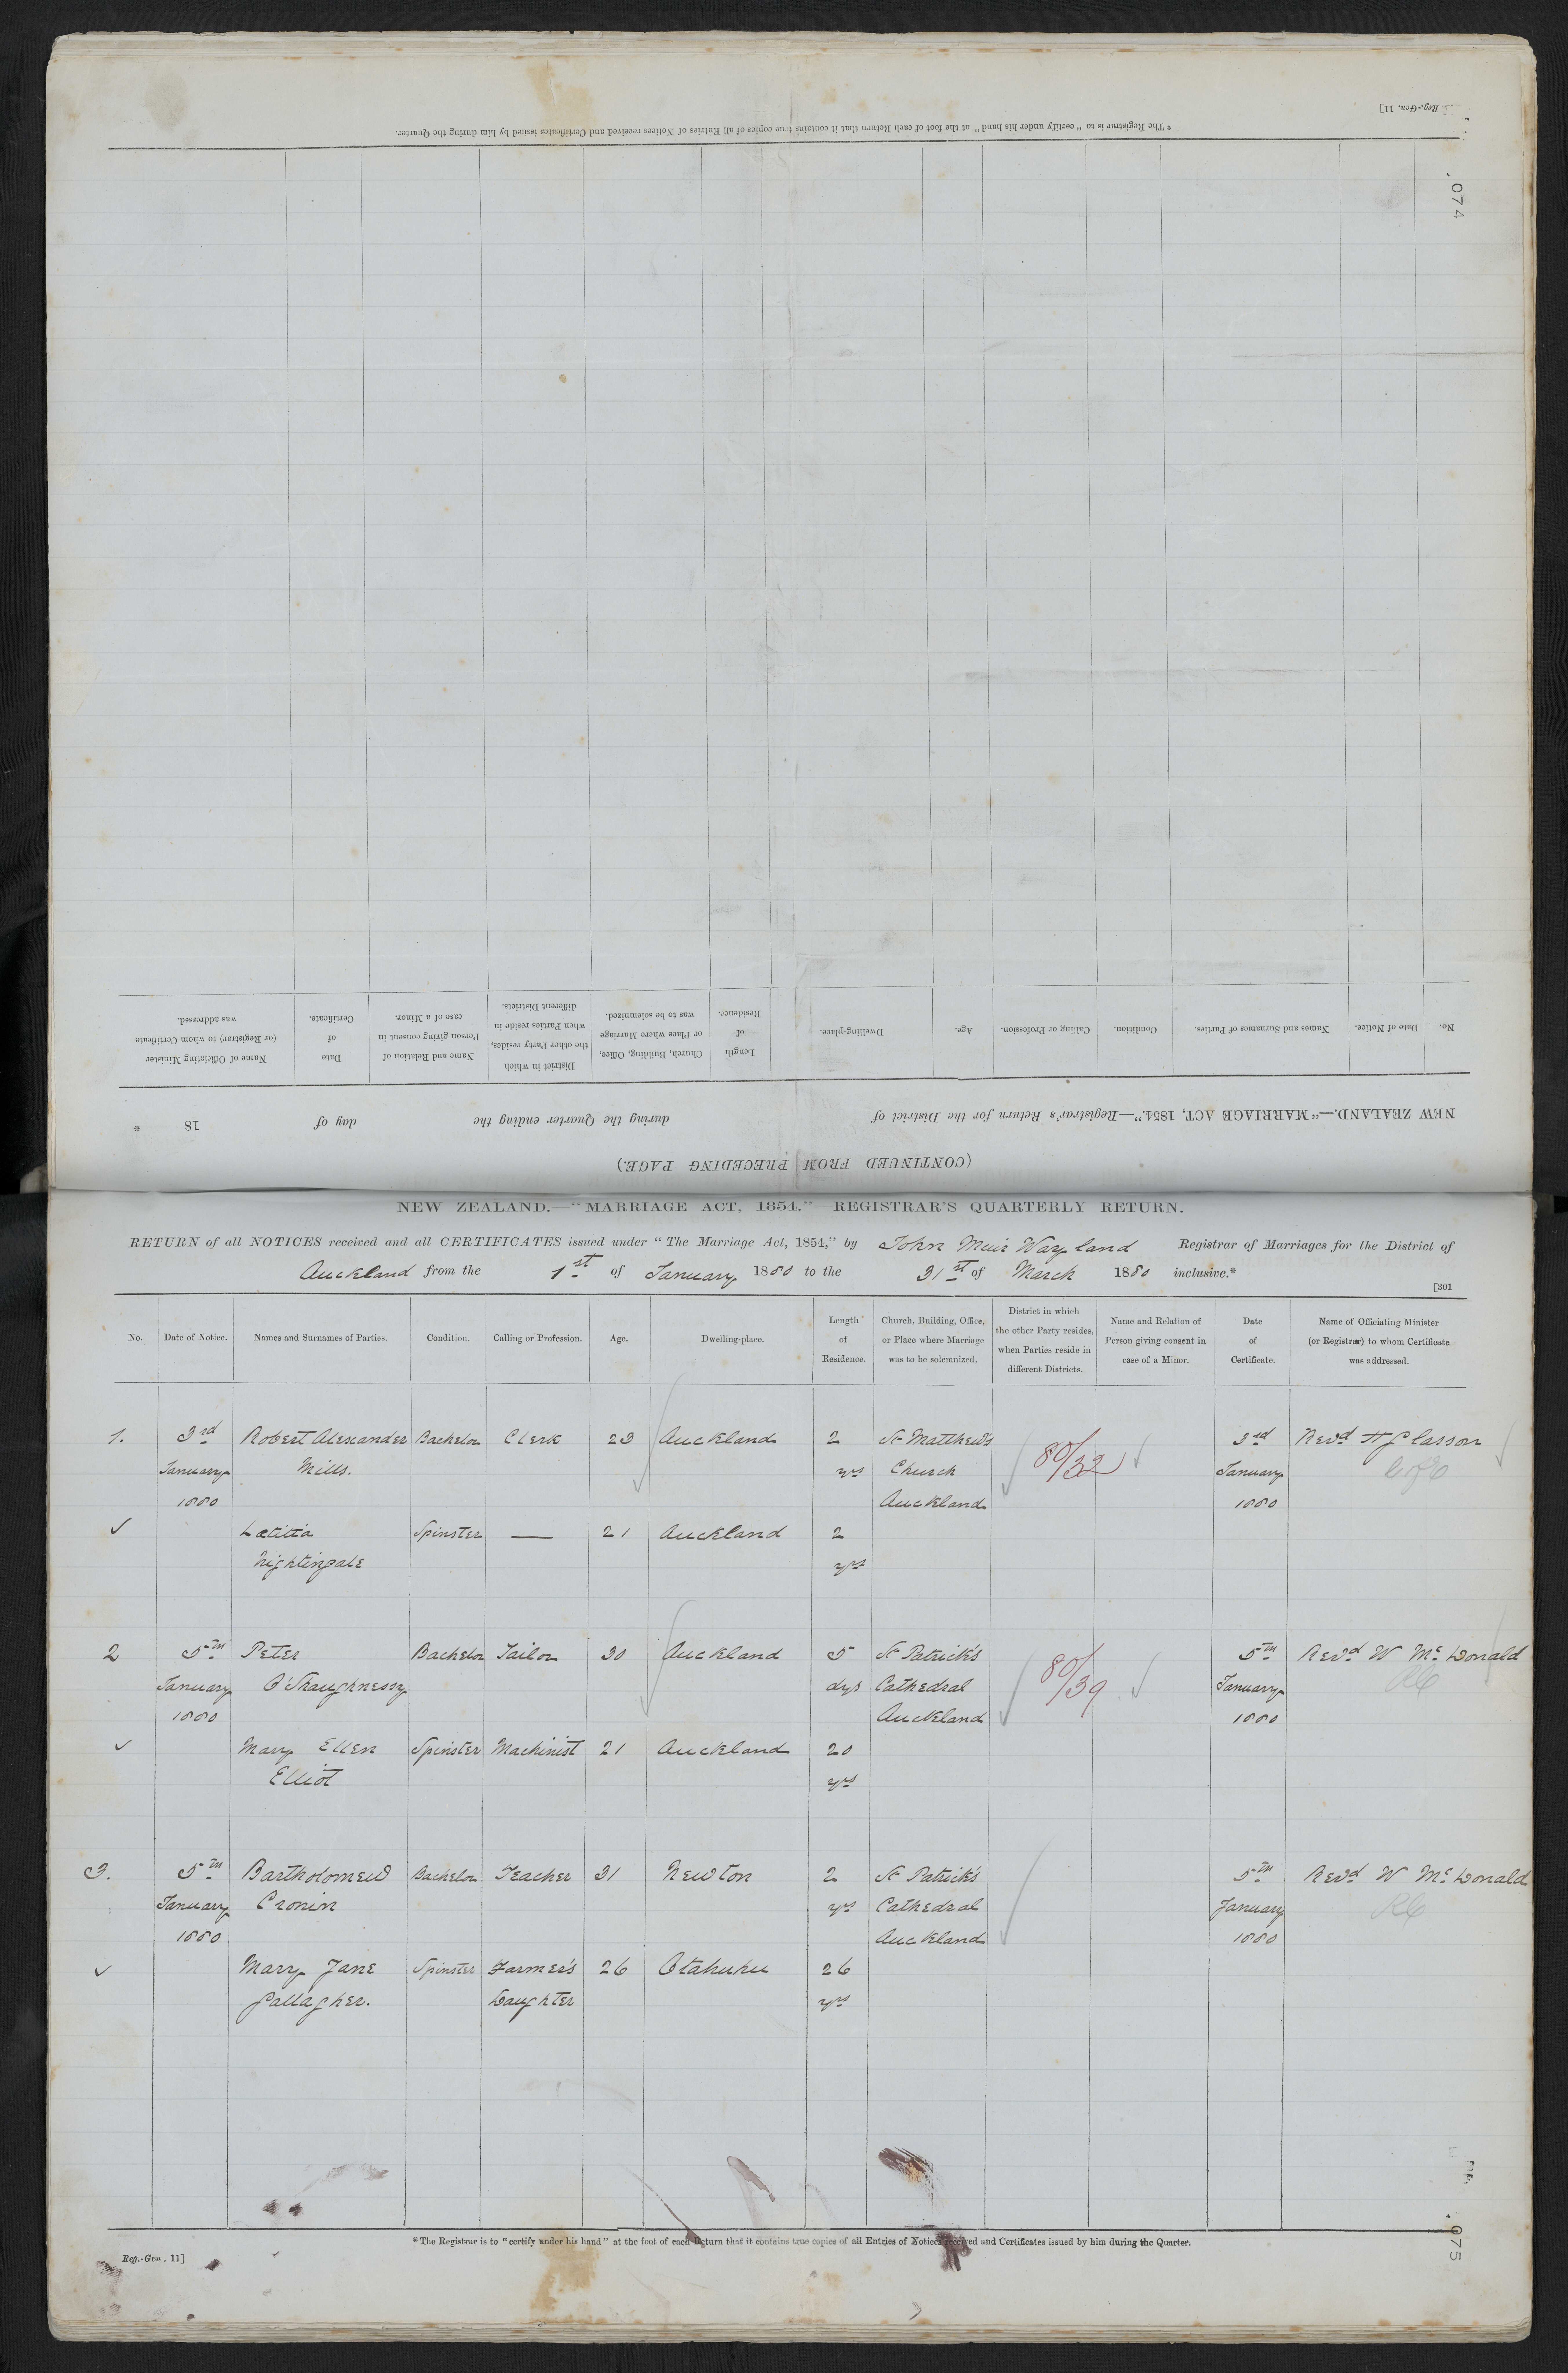 Reg.-Gen. 11]
* The Registrar is to "certify under his hand" at the foot of each Return that it contains true copies of all Entries of Notices received and Certificates issued by him during the Quarter.
074
(CONTINUED FROM PRECEDING PAGE.)
NEW ZEALAND.—"MARRIAGE ACT, 1854."—Registrar's Return for the District of during the Quarter ending the day of 18 *
No. Date of Notice. Names and Surnames of Parties. Condition. Calling or Profession. Age. Dwelling-place. Length of Residence. Church, Building, Office, or Place where Marriage was to be solemnized. District in which the other Party resides, when Parties reside in different Districts. Name and Relation of Person giving consent in case of a Minor. Date of Certificate. Name of Officiating Minister (or Registrar) to whom Certificate was addressed.
NEW ZEALAND.—"MARRIAGE ACT, 1854."—REGISTRAR'S QUARTERLY RETURN.
RETURN of all NOTICES received and all CERTIFICATES issued under "The Marriage Act, 1854," by John Meir Wayland Registrar of Marriages for the District of
Auckland from the 1st of January 1880 to the 31st of March 1880 inclusive.*
[301
No. Date of Notice. Names and Surnames of Parties. Condition. Calling or Profession. Age. Dwelling-place. Length of Residence. Church, Building, Office, or Place where Marriage was to be solemnized. District in which the other Party resides, when Parties reside in different Districts. Name and Relation of Person giving consent in case of a Minor. Date of Certificate. Name of Officiating Minister (or Registrar) to whom Certificate was addressed.
1. 3rd Robert Alexander Bachelor Clerk 23 Auckland 2 St Matthew's 80/32 3rd Revd H Glasson
January Mills. yrs Church January CofE
1880 Auckland 1880
Lætitia Spinster — 21 Auckland 2
Nightingale yrs
2 5th Peter Bachelor Tailor 30 Auckland 5 St Patrick's 80/39 5th Revd W Mc Donald
January O'Shaughnessy dys Cathedral January RC
1880 Auckland 1880
Mary Ellen Spinster Machinist 21 Auckland 20
Elliot yrs
3. 5th Bartholomew Bachelor Teacher 31 Newton 2 St Patrick's 5th Revd W Mc Donald
January Cronin yrs Cathedral January RC
1880 Auckland 1880
Mary Jane Spinster Farmer's 26 Otahuhu 26
Gallagher. Daughter yrs
* The Registrar is to "certify under his hand" at the foot of each Return that it contains true copies of all Entries of Notices received and Certificates issued by him during the Quarter.
Reg.-Gen. 11]
075